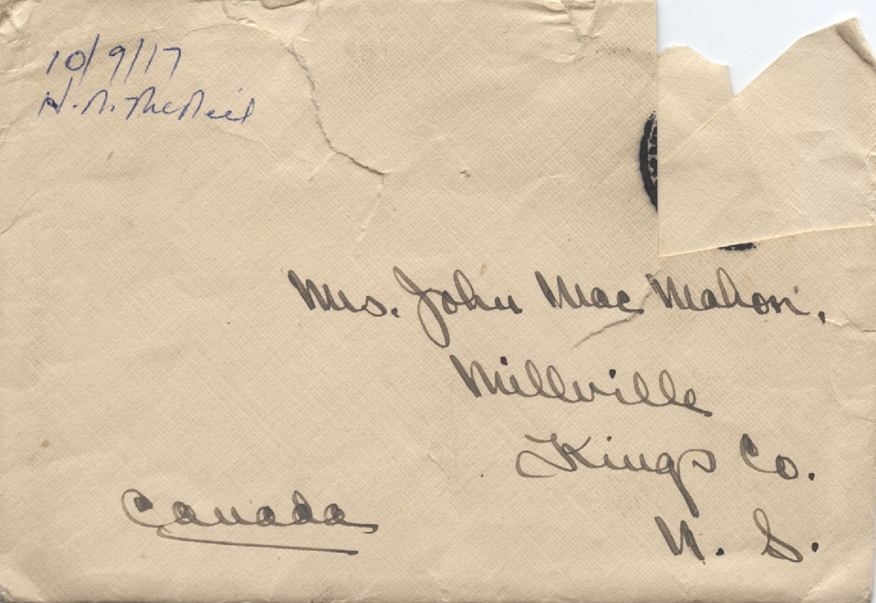 10/9/17
H. N. McNeil
Mrs. John Mac Mahon.
Millville
Kings Co.
Canada
N. S.